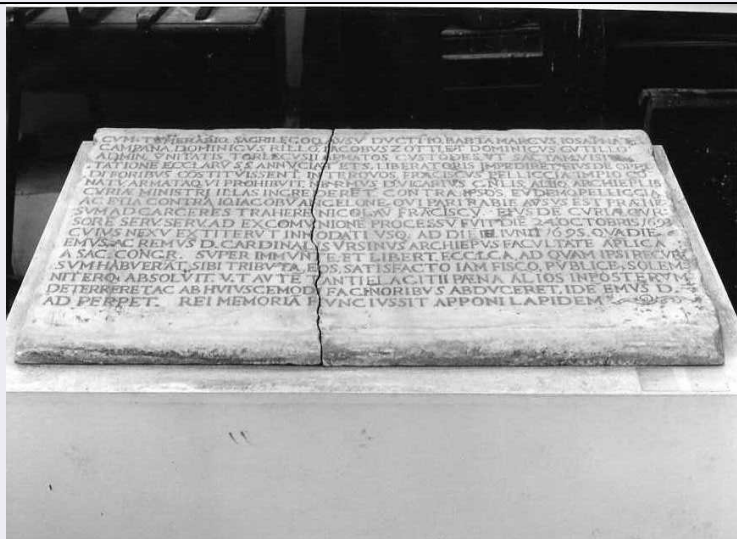 CVM TEMERARIO, SACRILEGOQ AVSV DVCTI IO. BABTA MARCVS IOSAPHAT
CAMPANA, DOMINICVS IVLLO, IACOBVS ZOTTI, ET DOMINICVS CVTILLO
ADMIN. VNITATIS TORLECVSII ARMATOS CVSTODES, VT SAC. TAM VISI
TATIONE ECCLARV SS. ANNVCIAT. ET S. LIBERATORIS IMPEDIRET, EIVSDE SVB
DI FORIBVS COSTITVISSENT, INTER QVOS FRACISCVS PELLICCIA IMPIO CO
NATV, ARMATAQ. VI PROHIBVIT, NE
CVRIA MINISTRI ILLAS INGREDERET, CONTRA IPSOS EVDEMQ. PELLICCIA
AC ETIA CONTRA IO. IACOBV ANGELONE, QVI PARI RABIE AVSVS EST PRÆFIS
SVM AD CARCERES TRAHERE NICOLAV FRACISCV EIVS DE CVRIA CVR
SORE, SERV. SERVAD. EX COMVNIONE PROCESSV FVIT DIE 24 OCTOBRIS 1692
CVIVS NEXV EXTITERVT INNODATI VSQ. AD DIE IVNII 1695, QVA DIE
EMVS, AC REMVS D. CARDINALIS VRSINVS ARCHIEPVS FACVLTATE APLICA
A SAC. CONGR. SVPER IMMVNTE, ET LIBERT. ECCLCA, AD QVAM IPSI RECVR
SVM HABVERAT, SIBI TRIBVTA, EOS, SATISFACTO IAM FISCO, PVBLICE, SOLEM
NITERQ. ABSOLVIT. VT AVTE TANTI FLAGITII PÆNA ALIOS INPOSTERV
DETERRERET, AC AB HVIVSCEMODI FACINORIBVS ABDVCERET, IDE EMVS D.
AD PERPET. REI MEMORIA HVNC IVSSIT APPONI LAPIDEM